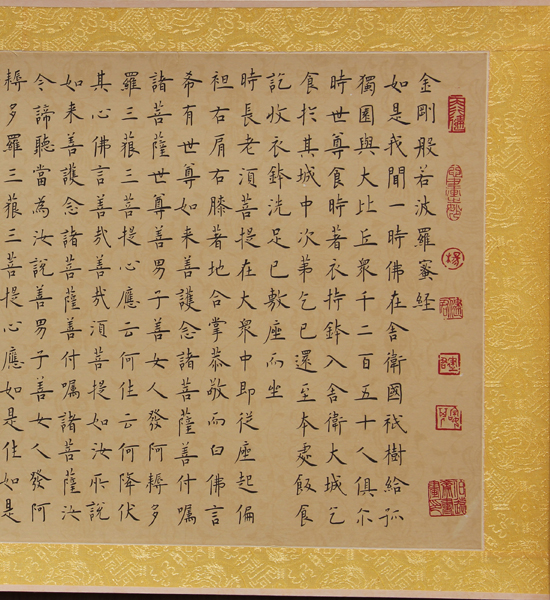 金剛般若波羅蜜経
如是我聞一時佛在舎衛國祇樹給孤
獨園與大比丘衆千二百五十人俱尓
時世尊食時著衣持鉢入舎衛大城乞
食於其城中次第乞已還至本處飯食
訖收衣鉢洗足已敷座而坐
時長老須菩提在大衆中即從座起偏
袒右肩右膝著地合掌恭敬而白佛言
希有世尊如来善護念諸菩薩善付嘱
諸菩薩世尊善男子善女人發阿耨多
羅三藐三菩提心應云何住云何降伏
其心佛言善哉善哉須菩提如汝所説
如来善護念諸菩薩善付嘱諸菩薩汝
今諦聽當為汝説善男子善女人發阿
耨多羅三藐三菩提心應如是住如是